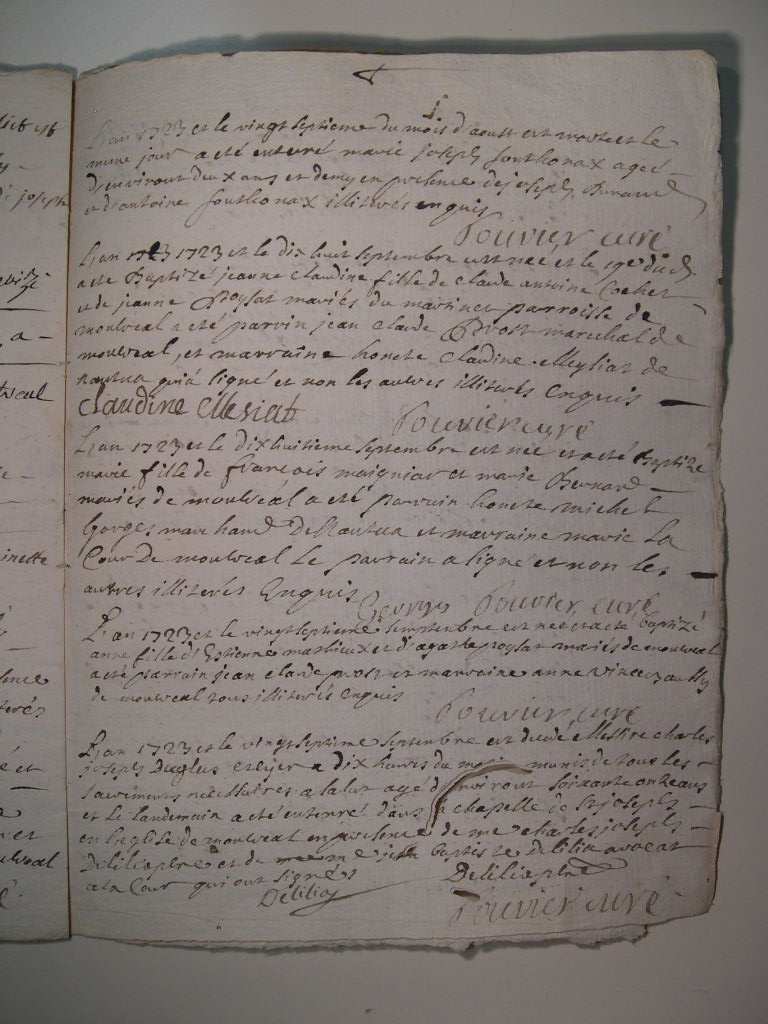 L'an 1723 et le vingt septieme du mois d'aoust est morte et le
meme jour a eté enterré marie joseph fonthonax agee
d'environt deux ans et demy en presence de joseph
et d'antoine fonthonax illiterés enquis
Pouvier curé
L'an 1723 et le dix huit septembre est nee et le 19e du dt
a eté Baptizé jeanne Claudine fille de Claude antoine Cochet
et de jeanne Poysat mariés du martinet parroisse de
montreal a eté parrin jean Claude Prost marechal de
montreal, et marraine honete Claudine Mesiat de
nantua qui a signé et non les autres illiterés enquis
Claudine Mesiat Pouvier curé
L'an 1723 et le dix huitieme septembre est née et a eté Baptizé
marie fille de francois maigniat et marie Bernard
mariés de montreal a eté parrain honete michel
Gorges marchand de Nantua et marraine marie La
Cour de montreal le parrain a signé et non les
autres illiterés Enquis
Gorges Pouvier curé
L'an 1723 et le vingt septieme semptembre est nee et a eté baptizé
anne fille d'Estienne mathieux et d'agathe poysat mariés de montreal
a eté parrain jean claude prost et marraine anne vincent
de montreal tous illiterés enquis
Pouvier curé
L'an 1723 et le vingt septime septembre est decedé Messire charles
joseph Duglas a dix heures du munis de tous les
sacrements necessaires a salut agé d'environt soixante onze ans
et le landemain a eté enterré dans la chapelle de St joseph
en l'eglise de montreal en presence de me charles joseph
Delilia ptre et de me jean baptiste Delilia avocat
a la Cour qui ont signés
Delilia Delilia ptre
Pouvier curé